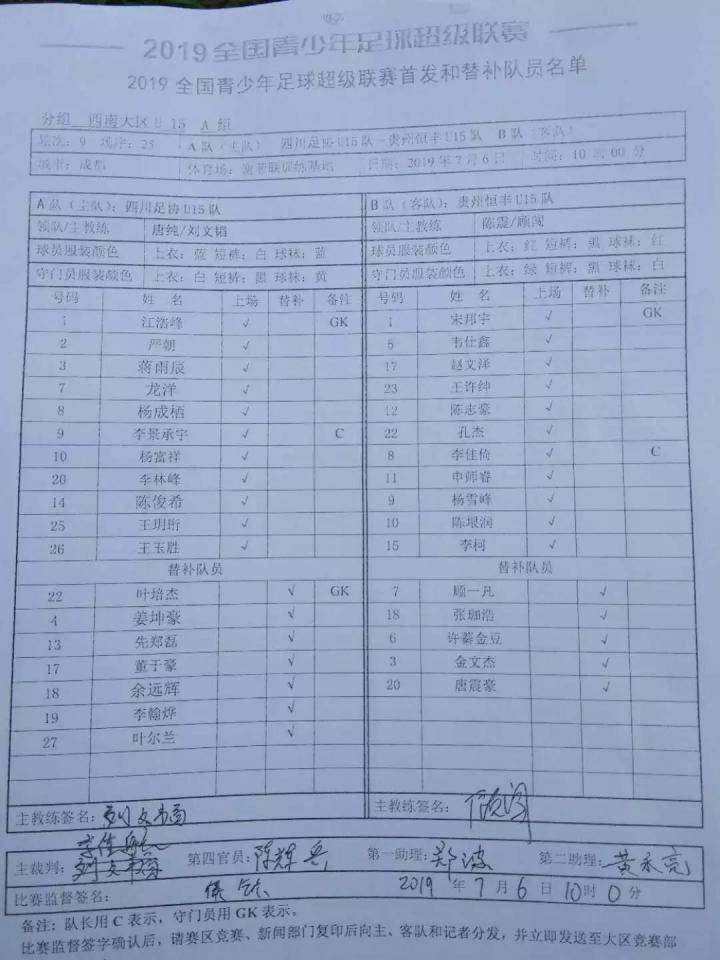 2019 全国青少年足球超级联赛
2019 全国青少年足球超级联赛首发和替补队员名单
分组 西南大区 U 15 A 组
轮次：9 场序：25 A 队（主队） 四川足协U15队－贵州恒丰U15队 B 队（客队）
城市：成都 体育场： 日期：2019 年 7 月 6 日 时间：10 时 00 分
A 队（主队）：四川足协 U15 队 B 队（客队）：贵州恒丰 U15 队
领队/主教练 唐纯/刘文韬 领队/主教练 陈震/顾闯
球员服装颜色 上衣：蓝 短裤：白 球袜：蓝 球员服装颜色 上衣：红 短裤：黑 球袜：红
守门员服装颜色 上衣：白 短裤：黑 球袜：黄 守门员服装颜色 上衣：绿 短裤：黑 球袜：白
号码 姓 名 上场 替补 备注 号码 姓 名 上场 替补 备注
1 江浩峰 √ GK 1 宋邦宇 √ GK
2 严朝 √ 5 韦仕鑫 √
3 蒋雨辰 √ 17 赵文泽 √
7 龙洋 √ 23 王许绅 √
8 杨成栖 √ 12 陈志豪 √
9 李景承宇 √ C 22 孔杰 √
10 杨富祥 √ 8 李佳倚 √ C
20 李林峰 √ 11 申师睿 √
14 陈俊希 √ 9 杨雪峰 √
25 王玥珩 √ 10 陈垠润 √
26 王玉胜 √ 15 李柯 √
替补队员 替补队员
22 叶培杰 √ GK 7 顾一凡 √
4 姜坤豪 √ 18 张珈浩 √
13 先郑磊 √ 6 许綦金豆 √
17 董于豪 √ 3 金文杰 √
18 余远辉 √ 20 唐震豪 √
19 李翰烨 √
27 叶尔兰 √
主教练签名：刘文韬 主教练签名：顾闯
主裁判： 第四官员：陈辉 第一助理：郑波 第二助理：黄永亮
比赛监督签名： 2019 年 7 月 6 日 10 时 0 分
备注：队长用 C 表示，守门员用 GK 表示。
比赛监督签字确认后，请赛区竞赛、新闻部门复印后向主、客队和记者分发，并立即发送至大区竞赛部